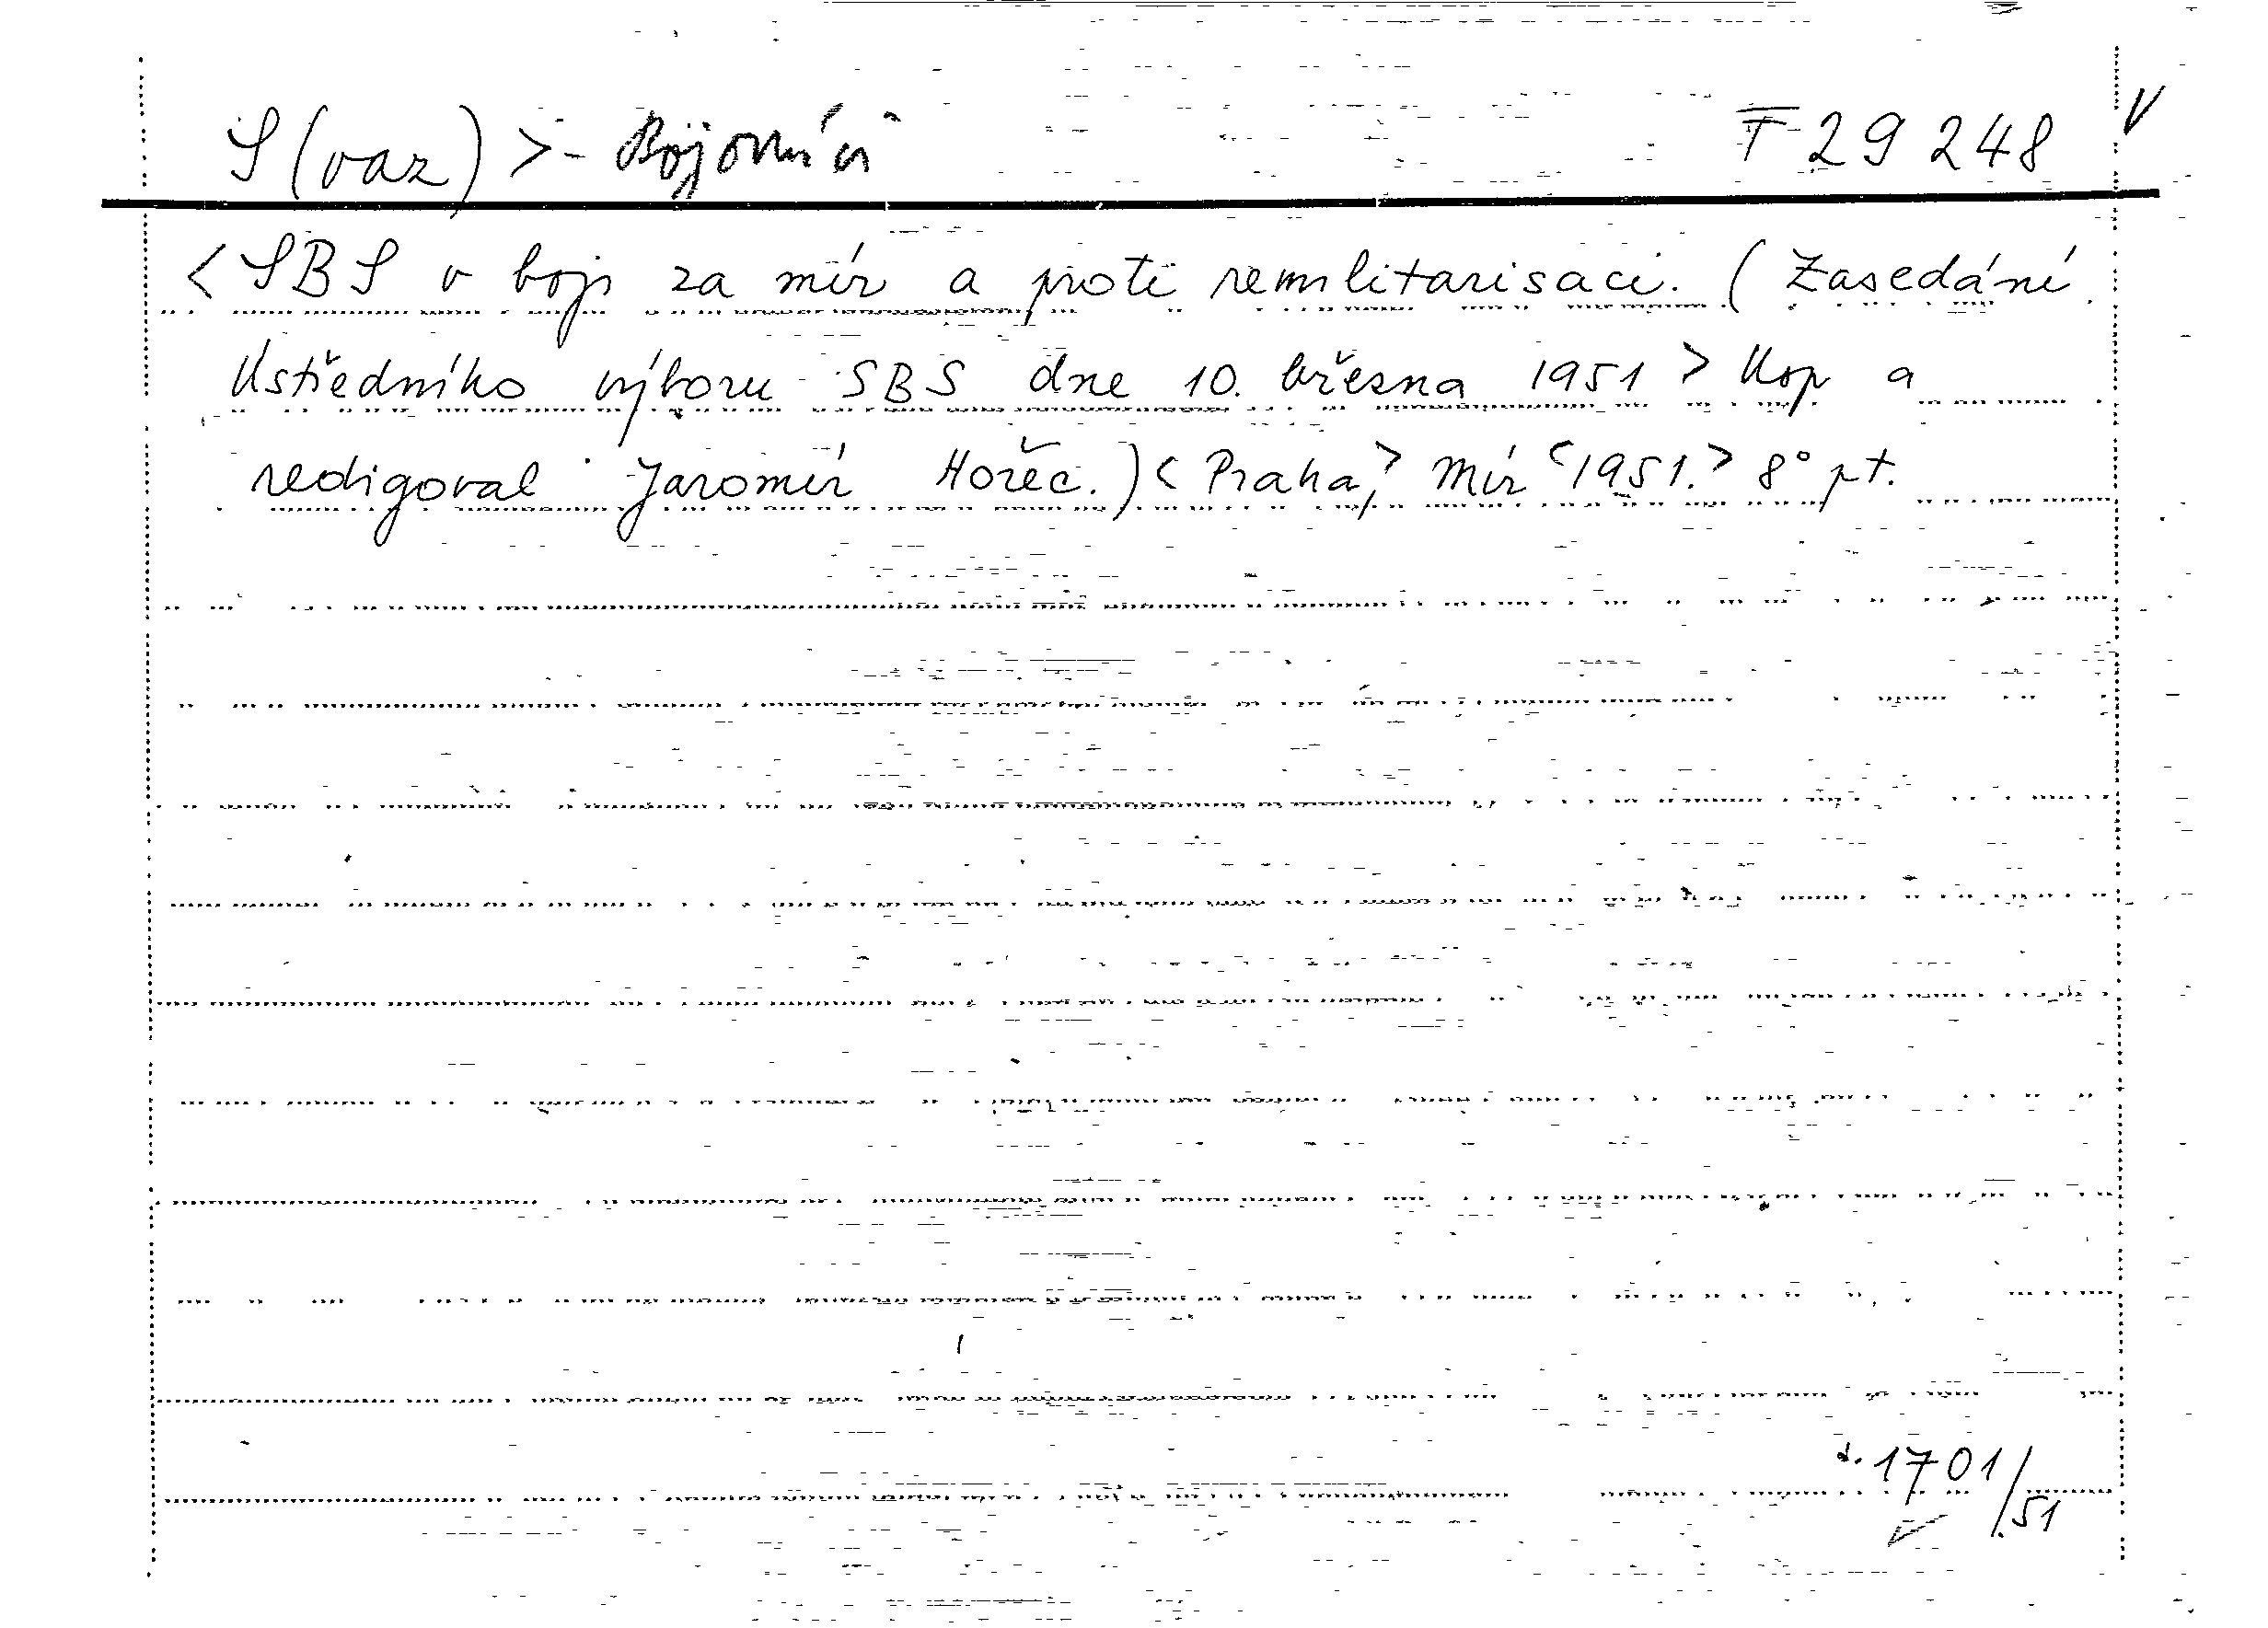 S(vaz) >- Bojovníků F 29 248 V
< SBS v boji za mír a proti remilitarisaci. (Zasedání
Ústředního výboru SBS dne 10. března 1951 > Usp a
redigoval Jaromír Hořec.) < Praha, > Mír < 1951. > 8° pt.
1701/51